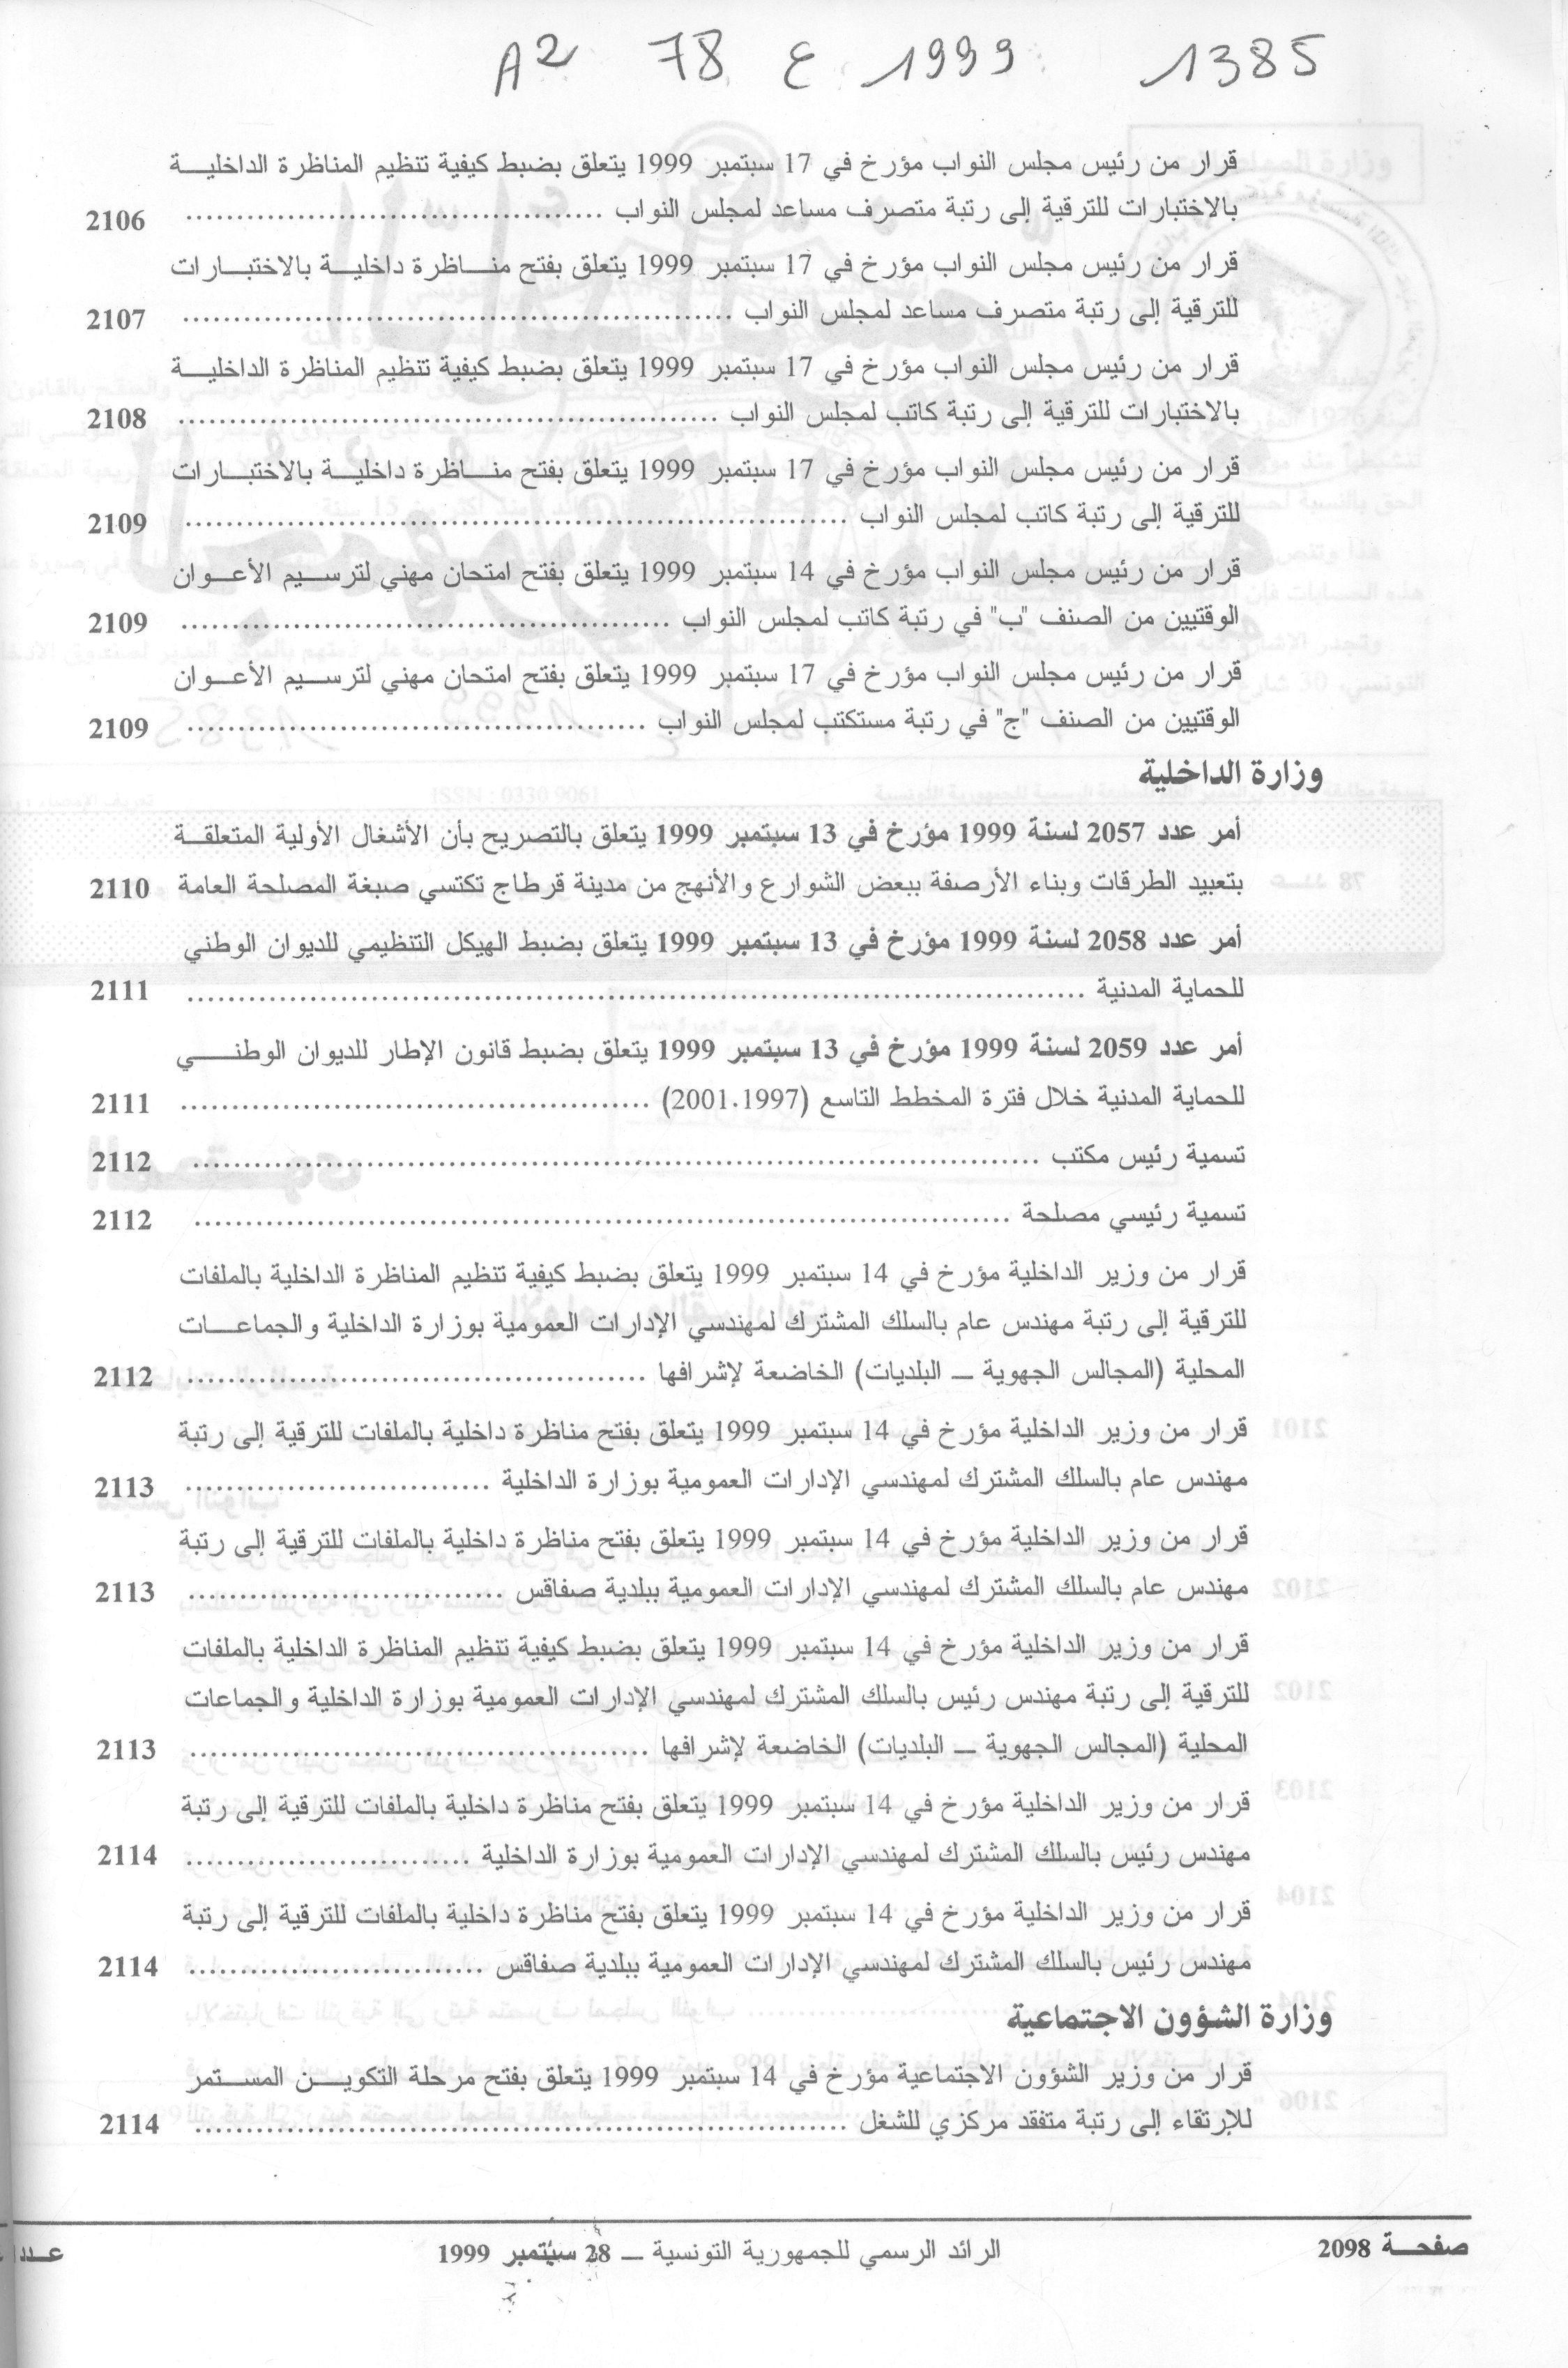 A2 78 ع 1999 1385
قرار من رئيس مجلس النواب مؤرخ في 17 سبتمبر 1999 يتعلق بضبط كيفية تنظيم المناظرة الداخلية
بالاختبارات للترقية إلى رتبة متصرف مساعد لمجلس النواب ........................................ 2106
قرار من رئيس مجلس النواب مؤرخ في 17 سبتمبر 1999 يتعلق بفتح مناظرة داخلية بالاختبارات
للترقية إلى رتبة متصرف مساعد لمجلس النواب ........................................ 2107
قرار من رئيس مجلس النواب مؤرخ في 17 سبتمبر 1999 يتعلق بضبط كيفية تنظيم المناظرة الداخلية
بالاختبارات للترقية إلى رتبة كاتب لمجلس النواب ........................................ 2108
قرار من رئيس مجلس النواب مؤرخ في 17 سبتمبر 1999 يتعلق بفتح مناظرة داخلية بالاختبارات
للترقية إلى رتبة كاتب لمجلس النواب ........................................ 2109
قرار من رئيس مجلس النواب مؤرخ في 14 سبتمبر 1999 يتعلق بفتح امتحان مهني لترسيم الأعوان
الوقتيين من الصنف "ب" في رتبة كاتب لمجلس النواب ........................................ 2109
قرار من رئيس مجلس النواب مؤرخ في 17 سبتمبر 1999 يتعلق بفتح امتحان مهني لترسيم الأعوان
الوقتيين من الصنف "ج" في رتبة مستكتب لمجلس النواب ........................................ 2109
وزارة الداخلية
أمر عدد 2057 لسنة 1999 مؤرخ في 13 سبتمبر 1999 يتعلق بالتصريح بأن الأشغال الأولية المتعلقة
بتعبيد الطرقات وبناء الأرصفة ببعض الشوارع والأنهج من مدينة قرطاج تكتسي صبغة المصلحة العامة 2110
أمر عدد 2058 لسنة 1999 مؤرخ في 13 سبتمبر 1999 يتعلق بضبط الهيكل التنظيمي للديوان الوطني
للحماية المدنية ........................................ 2111
أمر عدد 2059 لسنة 1999 مؤرخ في 13 سبتمبر 1999 يتعلق بضبط قانون الإطار للديوان الوطني
للحماية المدنية خلال فترة المخطط التاسع (2001.1997) ........................................ 2111
تسمية رئيس مكتب ........................................ 2112
تسمية رئيسي مصلحة ........................................ 2112
قرار من وزير الداخلية مؤرخ في 14 سبتمبر 1999 يتعلق بضبط كيفية تنظيم المناظرة الداخلية بالملفات
للترقية إلى رتبة مهندس عام بالسلك المشترك لمهندسي الإدارات العمومية بوزارة الداخلية والجماعات
المحلية (المجالس الجهوية ــ البلديات) الخاضعة لإشرافها ........................................ 2112
قرار من وزير الداخلية مؤرخ في 14 سبتمبر 1999 يتعلق بفتح مناظرة داخلية بالملفات للترقية إلى رتبة
مهندس عام بالسلك المشترك لمهندسي الإدارات العمومية بوزارة الداخلية .............................. 2113
قرار من وزير الداخلية مؤرخ في 14 سبتمبر 1999 يتعلق بفتح مناظرة داخلية بالملفات للترقية إلى رتبة
مهندس عام بالسلك المشترك لمهندسي الإدارات العمومية ببلدية صفاقس .............................. 2113
قرار من وزير الداخلية مؤرخ في 14 سبتمبر 1999 يتعلق بضبط كيفية تنظيم المناظرة الداخلية بالملفات
للترقية إلى رتبة مهندس رئيس بالسلك المشترك لمهندسي الإدارات العمومية بوزارة الداخلية والجماعات
المحلية (المجالس الجهوية ــ البلديات) الخاضعة لإشرافها ........................................ 2113
قرار من وزير الداخلية مؤرخ في 14 سبتمبر 1999 يتعلق بفتح مناظرة داخلية بالملفات للترقية إلى رتبة
مهندس رئيس بالسلك المشترك لمهندسي الإدارات العمومية بوزارة الداخلية ............................ 2114
قرار من وزير الداخلية مؤرخ في 14 سبتمبر 1999 يتعلق بفتح مناظرة داخلية بالملفات للترقية إلى رتبة
مهندس رئيس بالسلك المشترك لمهندسي الإدارات العمومية ببلدية صفاقس ............................ 2114
وزارة الشؤون الاجتماعية
قرار من وزير الشؤون الاجتماعية مؤرخ في 14 سبتمبر 1999 يتعلق بفتح مرحلة التكوين المستمر
للإرتقاء إلى رتبة متفقد مركزي للشغل ........................................ 2114
صفحة 2098 الرائد الرسمي للجمهورية التونسية ــ 28 سبتمبر 1999 عدد